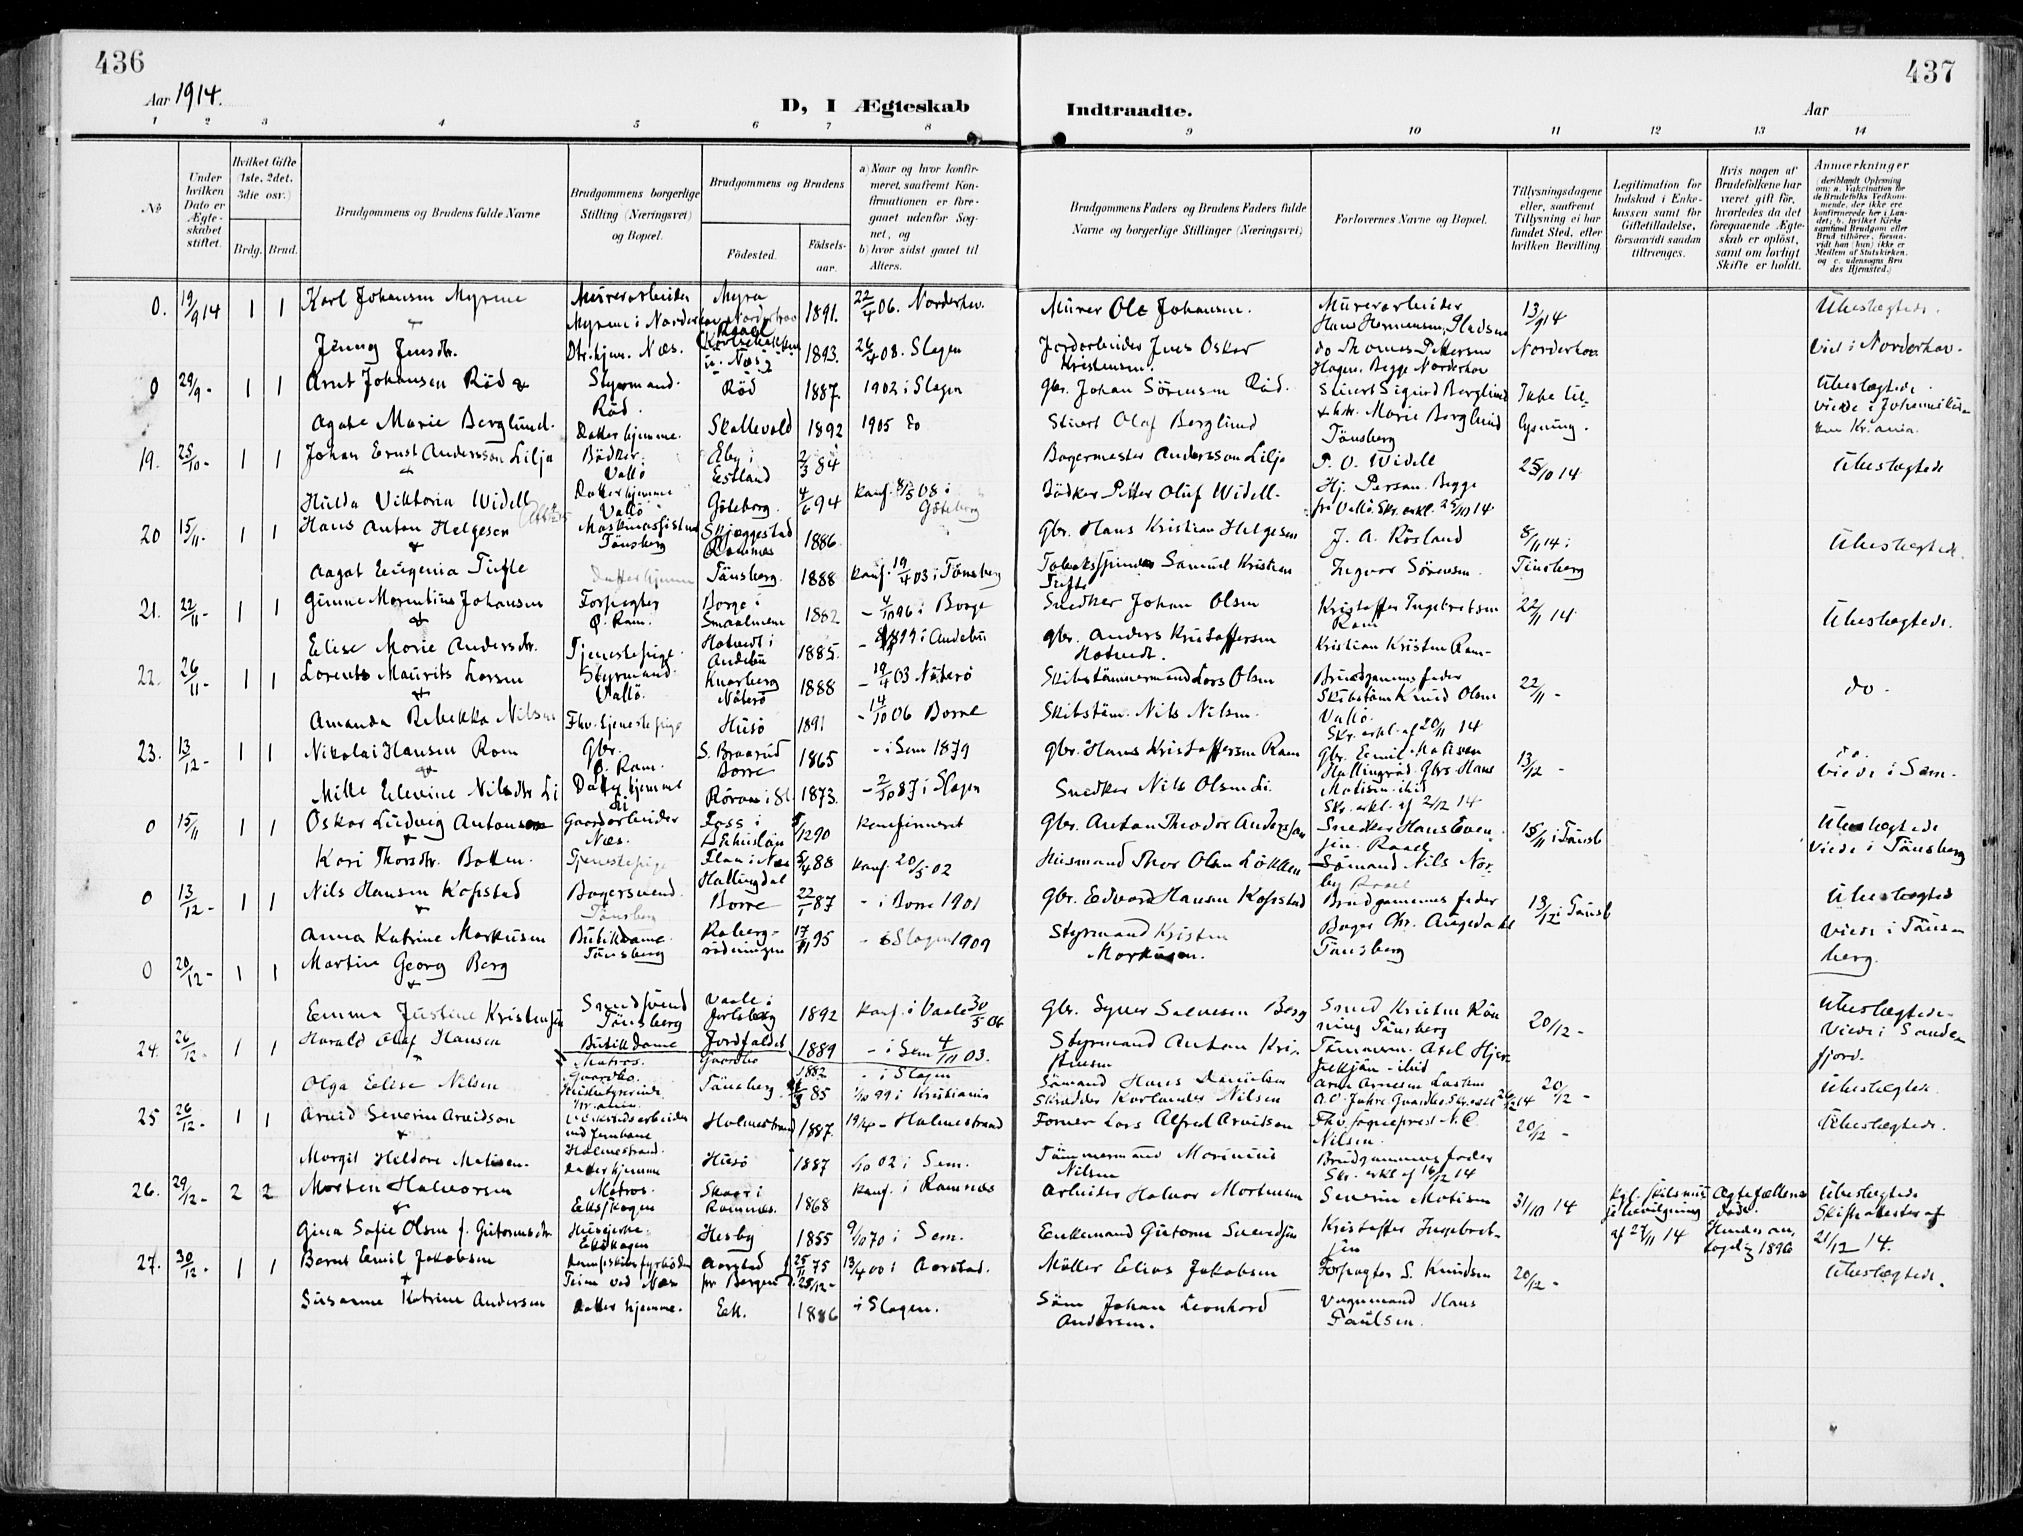 436
437
Aar 1914.
D, I Ægteskab
Indtraadte.
Aar
1 2 3 4 5 6 7 8
9 10 11 12 13 14
No
Under hvilken Dato er Ægteskabet stiftet.
Hvilket Gifte (1ste, 2det, 3die osv.)
Brdg. Brud.
Brudgommens og Brudens fulde Navne
Brudgommens borgerlige Stilling (Næringsvei) og Bopæl.
Brudgommens og Brudens
Fødested.
Fødselsaar.
a) Naar og hvor konfirmeret, saafremt Konfirmationen er foregaaet udenfor Sognet, og
b) hvor sidst gaaet til Alters.
Brudgommens Faders og Brudens Faders fulde Navne og borgerlige Stillinger (Næringsvei)
Forlovernes Navne og Bopæl.
Tillysningsdagene eller, saafremt Tillysning ei har fundet Sted, efter hvilken Bevilling
Legitimation for Indskud i Enkekassen samt for Giftetilladelse, forsaavidt saadan tiltrænges.
Hvis nogen af Brudefolkene har været gift før, hvorledes da det foregaaende Ægteskab er opløst, samt om lovligt Skifte er holdt.
Anmærkninger
(deriblandt Oplysning om: a. Vakcination for de Brudefolks Vedkommende, der ikke ere konfirmerede her i Landet; b. hvilket Kirkesamfund Brudgom eller Brud tilhører, forsaavidt han (hun) ikke er Medlem af Statskirken, og c. udensogns Brudes Hjemsted.)
0. 19/9 14 1 1 Karl Johansen Myrene Murerarbeider Myra 1891. 22/4 06. Norderhov. Murer Ole Johansen. Murerarbeider 13/9 14 Ubeslægtede.
Myrene i Norderhov Norderhov Hans Hermansen,
Jenny Jensdtr. Dtr. hjem. Næs. 1893. 26/4 08. Slagen Jordarbeider Jens Oskar Kristensen. do Thomas Pettersen Norderhov Viet i Norderhov.
Hagen. Begge Norderhov
0 29/9 - 1 1 Arnt Johansen Röd & Styrmand. Röd. Röd 1887. 1902 i Slagen Gbr. Johan Sörensen Röd. Stuert Sigurd Berglund Ikke tillysning. Ubeslægtede
Agate Marie Berglund. Datter hjemme. Skallevold 1892 1905 do Stuert Olaf Berglund Marie Berglund Tönsberg
19. 25/10 - 1 1 Johan Ernst Andersson Lilja Bödker. Vallö Eby i Estland 2/3 84 Bagermester Andersson Lilje P. O. Widell 25/10 14 Ubeslægtede
&
Hulda Viktoria Widell Datter hjemme Vallö Göteborg. 4/6 94 Konf. 08 i Göteborg Bödker Petter Oluf Widell - Hj. Person. Begge
fra Vallö. Skr. erkl. 25/10 14.
20 15/11 - 1 1 Hans Anton Helgesen Maskinassistent Tönsberg Skjæggestad Ramnæs 1886 Gbr. Hans Kristian Helgesen J. A. Rösland 8/11 14 i Tönsberg Ubeslægtede.
&
Aagot Eugenia Tufte Datter hjemme Tönsberg. 1888 Konf. 19/4 03 i Tönsberg Tobakspinder Samuel Kristian Tufte Ingvar Sörensen.
21. 22/11 - 1 1 Gunne Marentius Johansen Forpagter Ö. Ram. Borge i Smaalenene 1882 - 4/10 96 i Borge Snedker Johan Olsen Kristoffer Ingebretsen Ram 22/11 14 Ubeslægtede.
&
Elise Marie Andersdtr. Tjenestepige. Hotvedt i Andebu 1885. 99 i Andebu Gbr. Anders Kristoffersen Hotvedt. Kristian Kristen Ram -
22. 26/11 - 1 1 Lorents Maurits Larsen Styrmand. Vallö. Knarberg Nöterö 1888 - 19/4 03 Nöterö Skibstömmermand Lars Olsen Brudgommens fader 22/11 - do.
&
Amanda Rebekka Nilsen Fhv. tjenestepige Husö 1891 - 14/10 06 Borre Skibstöm. Nils Nilsen. Skibstöm Knud Olsen Vallö.
Skr. erkl. af 20/11 14
23. 13/12 - 1 1 Nikolai Hansen Ram Gbr. Ö. Ram. S. Braarud Borre 1865 - i Sem 1879 Gbr. Hans Kristoffersen Ram Gbr. Emil Matisen 13/12 - do.
&
Mille Elevine Nilsdtr Li Datter hjemme Li Röraas i Sl. 1873. - 2/10 87 i Slagen Snedker Nils Olsen Li. Gbr. Hans Matisen ibid Viede i Sem.
Skr. erkl. af 2/12 14
0 15/11 1 1 Oskar Ludvig Antonsen Gaardarbeider Næs. Foss i Bohuslän 5/12 90 Konfirmeret Gbr. Anton Theodor Andersson Snedker Hans Evensen. Raael 15/11 i Tönsb Ubeslægtede
&
Kari Thorsdtr. Batten. Tjenestepige Flaa i Næs Hallingdal 5/4 88 Konf. 20/5 02 Husmand Thor Olsen Lökken Sömand Nils Norby Raael Viede i Tönsberg
0 13/12 - 1 1 Nils Hansen Kopstad Bagersvend. Tönsberg Borre 22/1 87 - i Borre 1901 Gbr. Edvard Hansen Kopstad Brudgommens fader 13/12 i Tönsb Ubeslægtede
&
Anna Katrine Markusen Butikdame. Tönsberg 17/11 95 - i Slagen 1909 Styrmand Kristen Markusen. Bager Chr. Tönsberg Viede i Tönsberg.
0 20/12 - 1 1 Martin Georg Berg
&
Emma Justine Kristensen Smedsvend Tönsberg Vaale i Jarlsberg 1892 Konf. i Vaale 30/5 06 Gbr. Syver Salvesen Berg Smed Kristen Rönning Tönsberg 20/12 - Ubeslægtede.
Viede i Sandefjord.
24. 26/12 - 1 1 Harald Olaf Hansen Butikdame Jordfaldet 1889 - i Sem 4/11 03. Styrmand Anton Kristensen Tömmerm. Axel
Matros. Gaardbo. Gaardbo 1882 - i Slagen Sömand Hans Danielsen 20/12 - Ubeslægtede.
Olga Elise Nilsen Tönsberg 85 1/10 99 i Kristiania Skrædder Karlander Nilsen
25 26/12 - 1 1 Arvid Severin Arvidson Holmestrand 1887. 19/4 - Holmestrand Former Lars Alfred Arvidson Fhv. sogneprest N. C. Nilsen. 20/12 - Ubeslægtede.
&
Margit Heldora Matisen. Datter hjemme Husö 1887 02 i Sem. Tömmermand Marinius Nilsen Brudgommens fader
Skr. erkl af 16/12 14
26. 29/12 - 2 2 Morten Halvorsen Matros. Eikskogen Skaar i Ramnæs. 1868 Konf. i Ramnæs Arbeider Halvor Mortensen Severin Matisen 31/10 14 Kgl. skilsmissebevilgning af 27/11 14 Ægtefællens död. Ubeslægtede
&
Gina Sofie Olsen f. Gutormsdtr Eikskogen Hesby 1855 9/10 70 i Sem. Enkemand Gutorm Svendsen Kristoffer Ingebretsen 1896 Skifteattester af 21/12 14.
27. 30/12 - 1 1 Bernt Emil Jakobsen Dampskibsfyrböder Teien ved Næs Aarstad pr Bergen 25/11 75 13/4 00 i Aarstad. Möller Elias Jakobsen Forpagter S. Knudsen 20/12 - Ubeslægtede.
&
Susanne Katrine Andersen Datter hjemme. Eik. 1886 i Slagen. Söm Johan Leonhard Andersen. Vognmand Hans Paulsen.